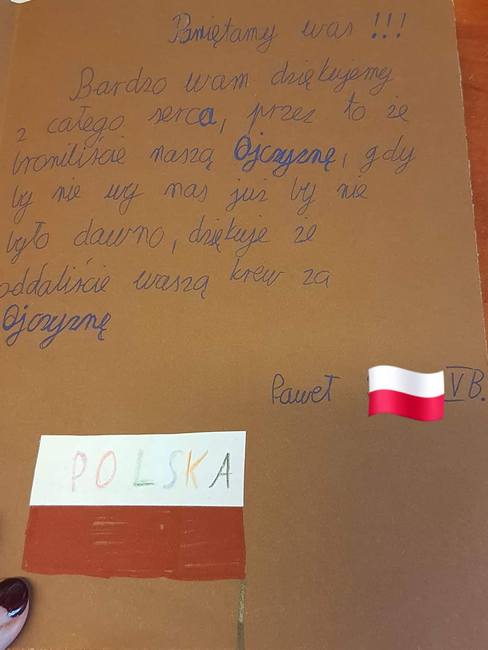 Pamiętamy was !!!
Bardzo wam dziękujemy
z całego serca, przez to że
broniliście naszą Ojczyznę, gdy
by nie wy nas już by nie
było dawno, dziękuje że
oddaliście waszą krew za
Ojczyznę
Paweł VB.
POLSKA